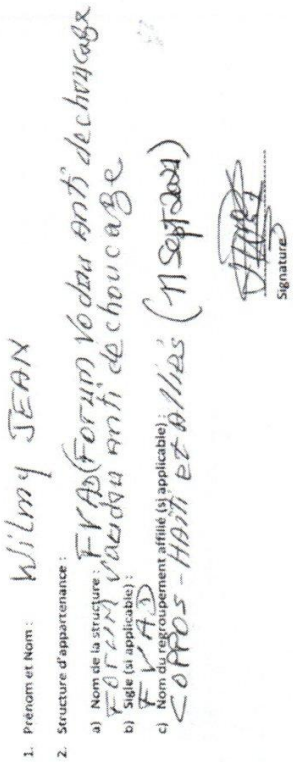 1. Prénom et Nom : Wilmy JEAN
2. Structure d'appartenance :
a) Nom de la structure : FVAD (Forum Vodou Anti dechoucage
FORUM Vaudou Anti dechoucage
b) Sigle (si applicable) :
FVAD
c) Nom du regroupement affilié (si applicable) :
COPPOS-HAÏTI et Alliés (11 Sept 2021)
Signature